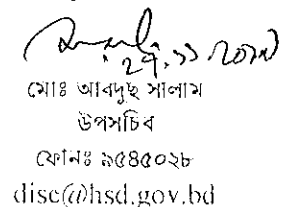 ২৭.১১.২০১৭
মোঃ আবদুছ সালাম
উপসচিব
ফোনঃ ৯৫৪৫০২৮
disc@hsd.gov.bd